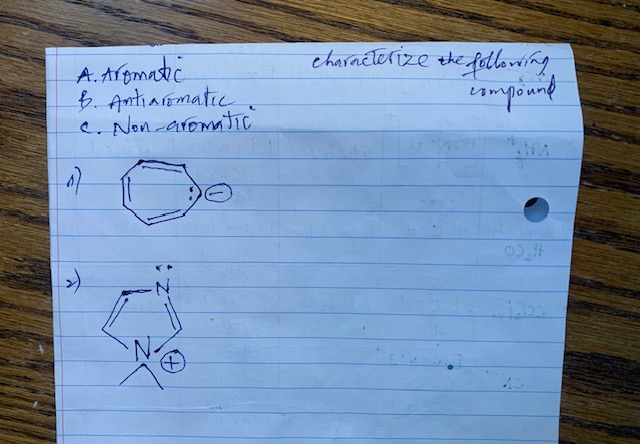 A. Aromatic
B. Antiaromatic
C. Non-aromatic
characterize the following
compound
1)
−
2)
N
N
+